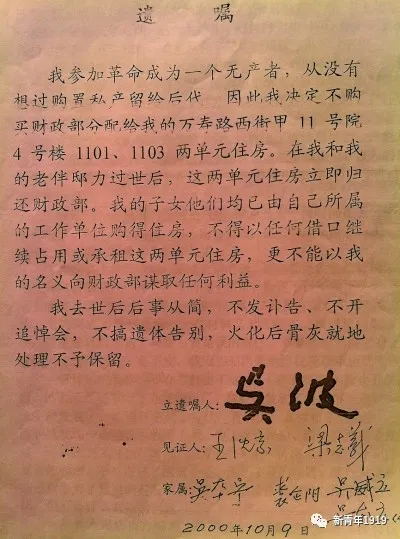 遗　嘱
我参加革命成为一个无产者，从没有
想过购置私产留给后代。因此我决定不购
买财政部分配给我的万寿路西街甲 11 号院
4 号楼 1101、1103 两单元住房。在我和我
的老伴邸力过世后，这两单元住房立即归
还财政部。我的子女他们均已由自己所属
的工作单位购得住房，不得以任何借口继
续占用或承租这两单元住房，更不能以我
的名义向财政部谋取任何利益。
我去世后后事从简，不发讣告、不开
追悼会，不搞遗体告别，火化后骨灰就地
处理不予保留。
立遗嘱人：吴波
见证人：
家属：吴本宁 裘企阳 吴威立
2000年10月9日
新青年1919